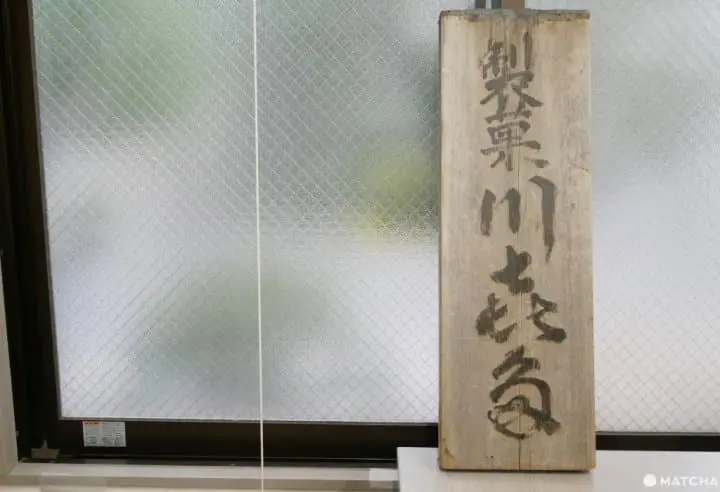 製菓川㐂多
MATCHA